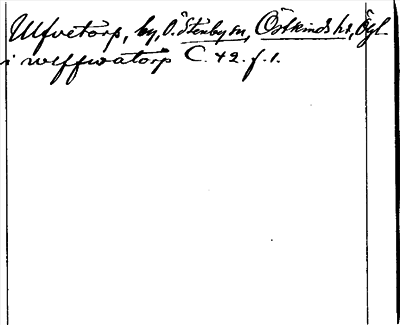 Ulfvetorp, by, Ö. Stenby sn, Östkinds hd, Ögl.
i wlffwatorp C. 42. f. 1.